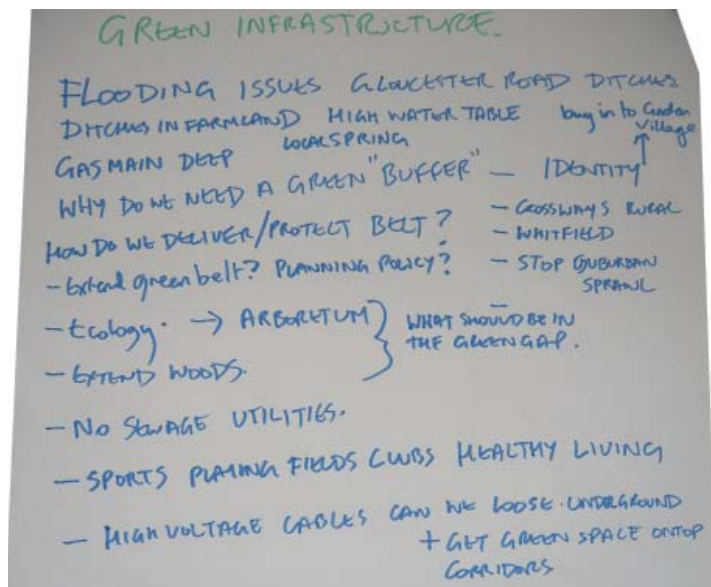 GREEN INFRASTRUCTURE.
FLOODING ISSUES GLOUCESTER ROAD DITCHES
DITCHES IN FARMLAND HIGH WATER TABLE buy in to Garden Village
GAS MAIN DEEP LOCAL SPRING
WHY DO WE NEED A GREEN "BUFFER" — IDENTITY
HOW DO WE DELIVER/PROTECT BELT?
- CROSSWAYS RURAL
- WHITFIELD
- Extend green belt? PLANNING POLICY?
- STOP SUBURBAN SPRAWL
-
- Ecology. → ARBORETUM
- EXTEND WOODS.
WHAT SHOULD BE IN
THE GREEN GAP.
- NO SEWAGE UTILITIES.
- SPORTS PLAYING FIELDS CLUBS HEALTHY LIVING
- HIGH VOLTAGE CABLES CAN WE LOOSE. UNDERGROUND
+ GET GREEN SPACE ONTOP
CORRIDORS